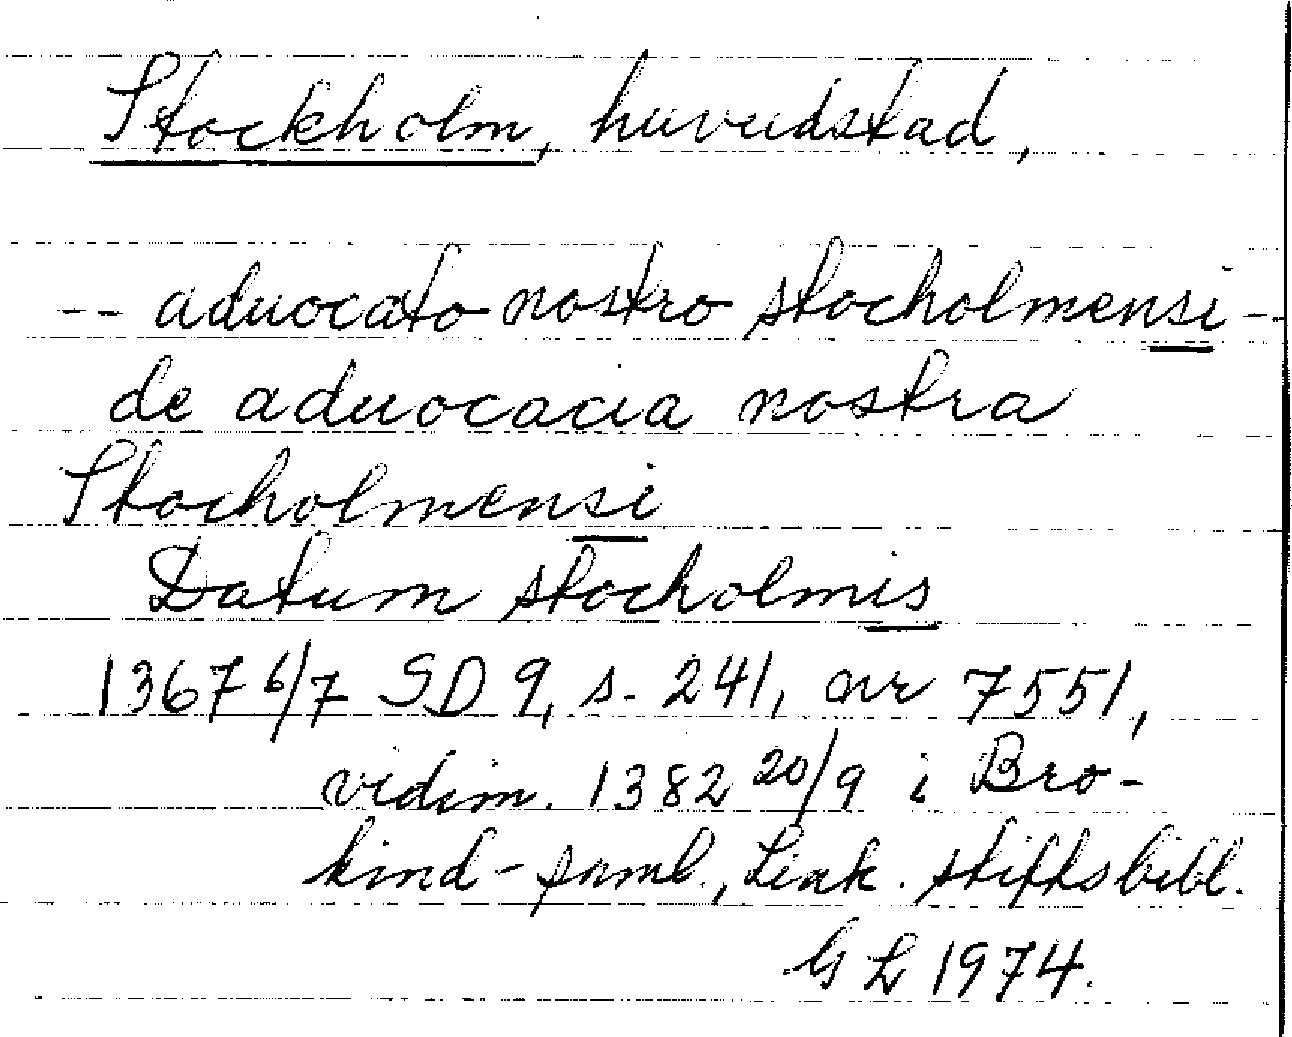 Stockholm, huvudstad,
-- aduocato nostro stocholmensi --
de aduocacia nostra
Stocholmensi
Datum stocholmis
1367 6/7 SD 9, s. 241, nr 7551,
vidim. 1382 20/9 i Bro-
kind-saml., Link. stiftsbibl.
GL 1974.